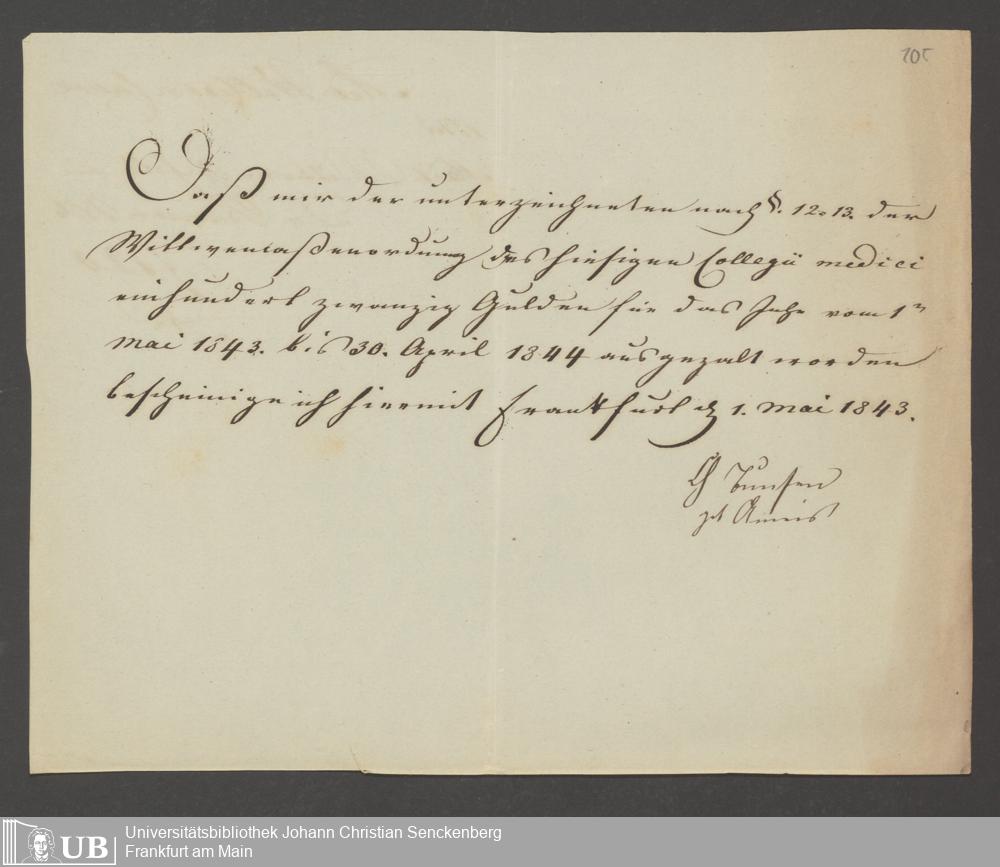 105
Daß mir der unterzeichneten nach §. 12. 13. der
Wittwencaßenordnung des hiesigen Collegii medici
einhundert zwanzig Gulden für das Jahr vom 1n
Mai 1843. bis 30. April 1844 ausgezalt worden
bescheinige ich hiermit Frankfurt d 1. Mai 1843.
Ch Bunsen
geb
UB
Universitätsbibliothek Johann Christian Senckenberg
Frankfurt am Main